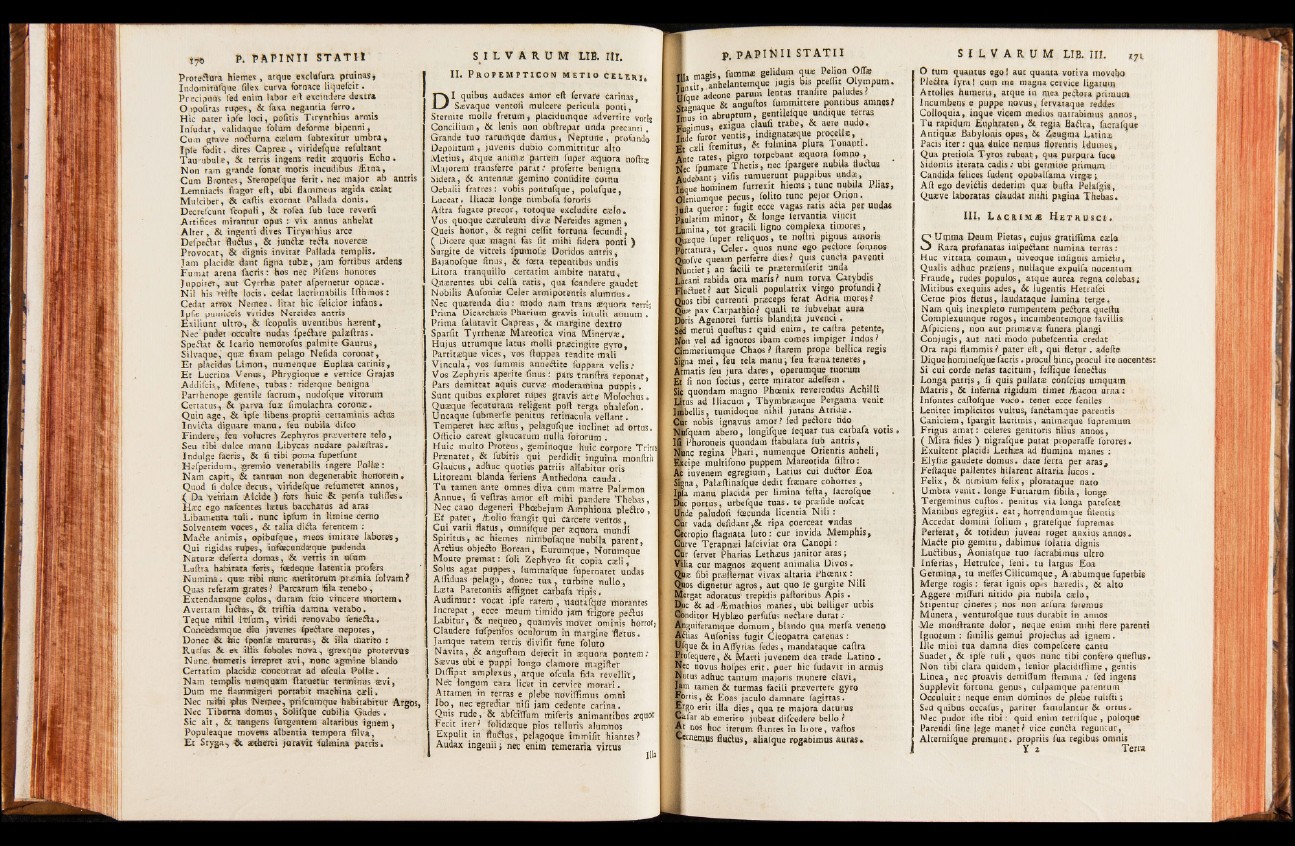 170 P. PAPINII STATII
Protectura hiemes, atque exclusura pruinas,
Indomitusque silex curva fornace liquescit.
Præcipuus sed enim labor est excindere dextra
Oppositas rupes, & saxa negantia ferro.
Hic pater ipse loci, positis Tirynthius armis
Insudat, validaque solum deforme bipenni,
Cum grave nocturna cælum subtexitur umbra,
Ipse fodit. dites Capreæ, viridesque resultant
Taurubulæ, & terris ingens redit æquoris Echo.
Non tam grande sonat motis incudibus Ætna,
Cum Brontes, Steropesque ferit. nec major ab antris
Lemniacis fragor est, ubi flammeus ægida cælat
Mulciber, & castis exornat Pallada donis.
Decrescunt scopuli, & rosea sub luce reversi
Artifices mirantur opus: vix annus anhelat
Alter, & ingenti dives Tirynthius arce
Despectat fluctus, & junctæ tecta novercæ
Provocat, & dignis invitat Pallada templis.
Jam placidæ dant signa tubæ, jam fortibus ardens
Fumat arena sacris: hos nec Pisæus honores
Juppiter, aut Cyrrhæ pater aspernetur opacæ.
Nil his triste locis. cedat lacrimabilis Isthmos:
Cedat atrox Nemee. litat hic felicior infans.
Ipsæ pumiceis virides Nereides antris
Exiliunt ultro, & scopulis uventibus hærent,
Nec pudet occulte nudas spectare palæstras.
Spectat & Icario nemorosus palmite Gaurus,
Silvaque, quæ fixam pelago Nesida coronat,
Et placidus Limon, numenque Euplæa carinis,
Et Lucrina Venus, Phrygioque e vertice Grajas
Addisces, Misene, tubas: ridetque benigna
Parthenope gentile sacrum, nudosque virorum
Certatus, & parva suæ simulachra coronæ.
Quin age, & ipse libens proprii certaminis actus
Invicta dignare manu. seu nubila disco
Findere, seu volucres Zephyros prævertere telo,
Seu tibi dulce manu Libycas nudare palæstras.
Indulge sacris, & si tibi poma superfunt
Hesperidum, gremio venerabilis ingere Pollæ:
Nam capit, & tantum non degenerabit honorem.
Quod si dulce decus, viridesque resumeret annos,
( Da veniam Alcide ) fors huic & pensa tulisses.
Hæc ego nascentes lætus bacchatus ad aras
Libamenta tuli. nunc ipsum in limine cerno
Solventem voces, & talia dicta ferentem:
Macte animis, opibusque, meos imitate labores,
Qui rigidas rupes, infœcundæque pudenda
Naturæ deserta domas, & vertis in usum
Lustra habitata feris, fœdeque latentia profers
Numina. quæ tibi nunc meritorum præmia solvam?
Quas referam grates? Parcarum fila tenebo,
Extendamque colos, duram scio vincere mortem.
Avertam luctus, & tristia damna vetabo.
Teque nihil læsum, viridi renovabo senecta.
Concedamque diu juvenes spectare nepotes,
Donec & hic sponsæ maturus, & illa marito:
Rursus & ex illis soboles nova, grexque protervus
Nunc humeris irreptet avi, nunc agmine blando
Certatim placidæ concurrat ad oscula Pollæ.
Nam templis nunquam statuetur terminus ævi,
Dum me flammigeri portabit machina cæli.
Nec mihi plus Nemee, priscumque habitabitur Argos,
Nec Tiburna domus, Solisque cubilia Gades.
Sic ait, & tangens surgentem altaribus ignem,
Populeaque movens albentia tempora silva,
Et Styga, & ætherei juravit fulmina patris.
SILVARUM LIB. III.
II. PROPEMPTICON METIO CELERI.
DI quibus audaces amor est servare carinas,
Sævaque ventosi mulcere pericula ponti,
Sternite molle fretum, placidumque advertite votis
Concilium, & lenis non obstrepat unda precanti.
Grande tuo rarumque damus, Neptune, profundo
Depositum, juvenis dubio committitur alto
Metius, atque animæ partem super æquora nostræ
Majorem transferre parat: proferte benigna
Sidera, & antennæ gemino considite cornu
Oebalii fratres: vobis pontusque, polusque,
Luceat. Iliacæ longe nimbosa sororis
Astra fugate precor, totoque excludite cælo.
Vos quoque cæruleum divæ Nereides agmen,
Queis honor, & regni cessit fortuna secundi,
( Dicere quæ magni fas sit mihi sidera ponti )
Surgite de vitreis spumosæ Doridos antris,
Bajanosque sinus, & fœta tepentibus undis
Litora tranquillo certatim ambite natatu,
Quærentes ubi celsa ratis, qua scandere gaudet
Nobilis Ausoniæ Celer armipotentis alumnus.
Nec quærenda diu: modo nam trans æquora terris
Prima Dicarchæis Pharium gravis intulit annum.
Prima salutavit Capreas, & margine dextro
Sparsit Tyrrhenæ Mareotica vina Minervæ.
Hujus utrumque latus molli præcingite gyro,
Partitæque vices, vos stuppea tendite mali
Vincula, vos summis annectite suppara velis:
Vos Zephyris aperite sinus: pars transtra reponat,
Pars demittat aquis curvæ moderamina puppis.
Sunt quibus exploret rupes gravis arte Molochus.
Quæque secuturam religent post terga phaselon.
Uncaque submersæ penitus retinacula vellant.
Temperet hæc æstus, pelagusque inclinet ad ortus.
Officio careat glaucarum nulla sororum.
Huic multo Proteus, geminoque huic corpore Triton
Prænatet, & subitis qui perdidit inguina monstris
Glaucus, adhuc quoties patriis allabitur oris
Litoream blanda feriens Anthedona cauda.
Tu tamen ante omnes diva cum matre Palæmon
Annue, si vestras amor est mihi pandere Thebas,
Nec cano degeneri Phœbejum Amphiona plectro,
Et pater, Æolio frangit qui carcere ventos,
Cui varii flatus, omnisque per æquora mundi
Spiritus, ac hiemes nimbosaque nubila parent,
Arctius objecto Borean, Eurumque, Notumque
Monte premat: soli Zephyro sit copia cæli,
Solus agat puppes, summasque supernatet undas
Assiduus pelago, donec tua, turbine nullo,
Læta Paretoniis assignet carbasa ripis.
Audimur: vocat ipse ratem, nautasque morantes
Increpat, ecce meum timido jam frigore pectus
Labitur, & nequeo, quamvis movet ominis horror,
Claudere suspensos oculorum in margine fletus.
Jamque ratem terris divisit fune soluto
Navita, & angustum dejecit in æquora pontem:
Sævus ubi e puppi longo clamore magister
Dissipat amplexus, atque oscula fida revellit,
Nec longum cara licet in cervice morari.
Attamen in terras e plebe novissimus omni
Ibo, nec egrediar nisi jam cedente carina.
Quis rude, & abscissum miseris animantibus æquor
Fecit iter? solidæque pios telluris alumnos
Expulit in fluctus, pelagoque immisit hiantes?
Audax ingenii; nec enim temeraria virtus
Illa
P. PAPINII STATII
Illa magis, summæ gelidum quæ Pelion Ossæ
Junxit, anhelantemque jugis bis pressit Olympum.
Usque adeone parum lentas transire paludes?
Stagnaque & angustos summittere pontibus amnes?
Imus in abruptum, gentilesque undique terras
Fugimus, exigua clausi trabe, & aere nudo.
Inde furor ventis, indignatæque procellæ,
Et cæli fremitus, & fulmina plura Tonanti.
Ante rates, pigro torpebant æquora somno,
Nec spumare Thetis, nec spargere nubila fluctus
Audebant; visis tumuerunt puppibus undæ,
Inque hominem surrexit hiems; tunc nubila Plias,
Oleniumque pecus, solito tunc pejor Orion.
Justa queror: fugit ecce vagas ratis acta per undas
Paulatim minor, & longe servantia vincit
Lumina, tot gracili ligno complexa timores,
Quæque super reliquos, te nostri pignus amoris
Portatura, Celer. quos nunc ego pectore somnos
Quosve queam perferre dies? quis cuncta paventi
Nunciet; an facili te prætermiserit unda
Lucani rabida ora maris? num torva Carybdis
Fluctuet? aut Siculi populatrix virgo profundi?
Quos tibi currenti præceps ferat Adria mores?
Quæ pax Carpathio? quali te subvehat aura
Doris Agenorei furtis blandita juvenci.
Sed merui questus: quid enim, te castra petente,
Non vel ad ignotos ibam comes impiger Indos?
Cimmeriumque Chaos? starem prope bellica regis
Signa mei, seu tela manu, seu fræna teneres,
Armatis seu jura dares, operumque tuorum
Et si non socius, certe mirator adessem.
Sic quondam magno Phœnix reverendus Achilli
Litus ad Iliacum, Thymbræaque Pergama venit
Imbellis, tumidoque nihil jurans Atridæ.
Cur nobis ignavus amor? sed pectore fido
Nusquam abero, longisque sequar tua carbasa votis.
Isi Phoroneis quondam stabulata sub antris,
Nunc regina Phari, numenque Orientis anheli,
Excipe multisono puppem Mareotida sistro:
Ac juvenem egregium, Latius cui ductor Eoa
Signa, Palæstinasque dedit frænare cohortes,
Ipsa manu placida per limina festa, sacrosque
Duc portus, urbesque tuas. te præside noscat
Unde paludosi fœcunda licentia Nili:
Cur vada desidant, & ripa coerceat undas
Cecropio stagnata luto: cur invida Memphis,
Curve Terapnæi lasciviat ora Canopi:
Cur servet Pharias Lethæus janitor aras;
Vilia cur magnos æquent animalia Divos.
Quæ sibi præsternat vivax altaria Phœnix:
Quos dignetur agros, aut quo se gurgite Nili
Mergat adoratus trepidis pastoribus Apis.
Duc & ad Æmathios manes, ubi belliger urbis
Conditor Hyblæo perfusus nectare durat.
Anguiferamque domum, blando qua mersa veneno
Actias Ausonias fugit Cleopatra catenas:
Usque & in Assyrias sedes, mandataque castra
Prosequere, & Marti juvenem dea trade Latino.
Nec novus hospes erit. puer hic sudavit in armis
Notus adhuc tantum majoris munere clavi,
Jam tamen & turmas facili prævertere gyro
Fortis, & Eoas jaculo damnare sagittas.
Ergo erit illa dies, qua te majora daturus
Cæsar ab emerito jubeat discedere bello?
At nos hoc iterum stantes in litore, vastos
Cernemus fluctus, aliasque rogabimus auras.
SILVARUM LIB. III. 171
O tum quantus ego! aut quanta votiva movebo
Plectra lyra! cum me magna cervice ligatum
Attolles humeris, atque in mea pectora primum
Incumbens e puppe novus, servataque reddes
Colloquia, inque vicem medios narrabimus annos,
Tu rapidum Euphraten, & regia Bactra, sacrasque
Antiquæ Babylonis opes, & Zeugma Latinæ
Pacis iter: qua dulce nemus florentis Idumes,
Qua pretiosa Tyros rubeat, qua purpura fuco
Sidoniis iterata cadis: ubi germine primum
Candida felices sudent opobalsama virgæ;
Ast ego devictis dederim quæ busta Pelasgis,
Quæve laboratas claudat mihi pagina Thebas.
III. LACRIMÆ HETRUSCI.
SUmma Deum Pietas, cujus gratissima cælo
Rara profanatas inspectant numina terras:
Huc vittata comam, niveoque insignis amictu,
Qualis adhuc præsens, nullaque expulsa nocentum
Fraude, rudes populos, atque aurea regna colebas;
Mitibus exequiis ades, & lugentis Hetrusci
Cerne pios fletus, laudataque lumina terge.
Nam quis inexpleto rumpentem pectora questu
Complexumque rogos, incumbentemque favillis
Aspiciens, non aut primævæ funera plangi
Conjugis, aut nati modo pubescentia credat
Ora rapi flammis? pater est, qui fletur. adeste
Dique hominesque sacris. procul hinc, procul ite nocentes:
Si cui corde nefas tacitum, fessique senectus
Longa patris, si quis pulsatæ conscius umquam
Matris, & inferna rigidum timet Æacon urna:
Insontes castosque voco. tenet ecce seniles
Leniter implicitos vultus, sanctamque parentis
Caniciem, spargit lacrimis, animæque supremum
Frigus amat: celeres genitoris filius annos,
( Mira fides ) nigrasque putat properasse sorores.
Exultent placidi Lethæa ad flumina manes:
Elysiæ gaudete domus. date serta per aras,
Festaque pallentes hilarent altaria lucos.
Felix, & nimium felix, plorataque nato
Umbra venit. longe Furiarum sibila, longe
Tergeminus custos. penitus via longa patescat
Manibus egregiis. eat, horrendumque silentis
Accedat domini solium, gratesque supremas
Perferat, & totidem juveni roget anxius annos.
Macte pio gemitu, dabimus solatia dignis
Luctibus, Aoniasque tuo sacrabimus ultro
Inferias, Hetrusce, seni. tu largus Eoa
Germina, tu messes Cilicumque, Arabumque superbis
Merge rogis: ferat ignis opes hæredis, & alto
Aggere missuri nitido pia nubila cælo,
Stipentur cineres; nos non arsura feremus
Munera, venturosque tuus durabit in annos
Me monstrante dolor, neque enim mihi flere parenti
Ignotum: similis gemui projectus ad ignem.
Ille mini tua damna dies compescere cantu
Suadet, & ipse tuli, quos nunc tibi confero questus.
Non tibi clara quidem, senior placidissime, gentis
Linea, nec proavis demissum stemma: sed ingens
Supplevit fortuna genus, culpamque parentum
Occuluit: neque enim dominos de plebe tulisti;
Sed quibus occasus, pariter famulantur & ortus.
Nec pudor iste tibi: quid enim terrisque, poloque
Parendi sine lege manet? vice cuncta reguntur,
Alternisque premunt. propriis sua regibus omnis
Y 2 Terra